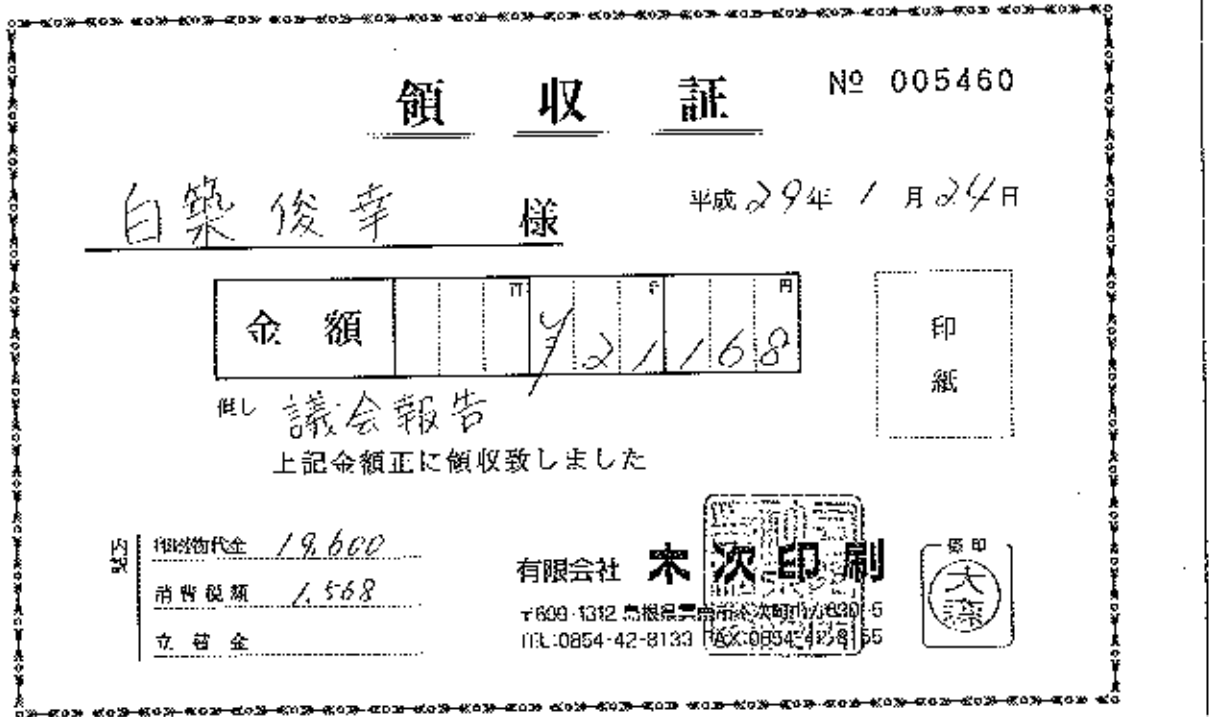 領収証
№ 005460
白築俊幸 様
平成29年1月24日
金額 百 千 円
¥21168
印紙
但し 議会報告
上記金額正に領収致しました
内訳
印刷物代金 19,600
消費税額 1,568
立替金
有限会社 木次印刷
〒699-1312 島根県雲南市木次町
TEL:0854-42-8133
係印